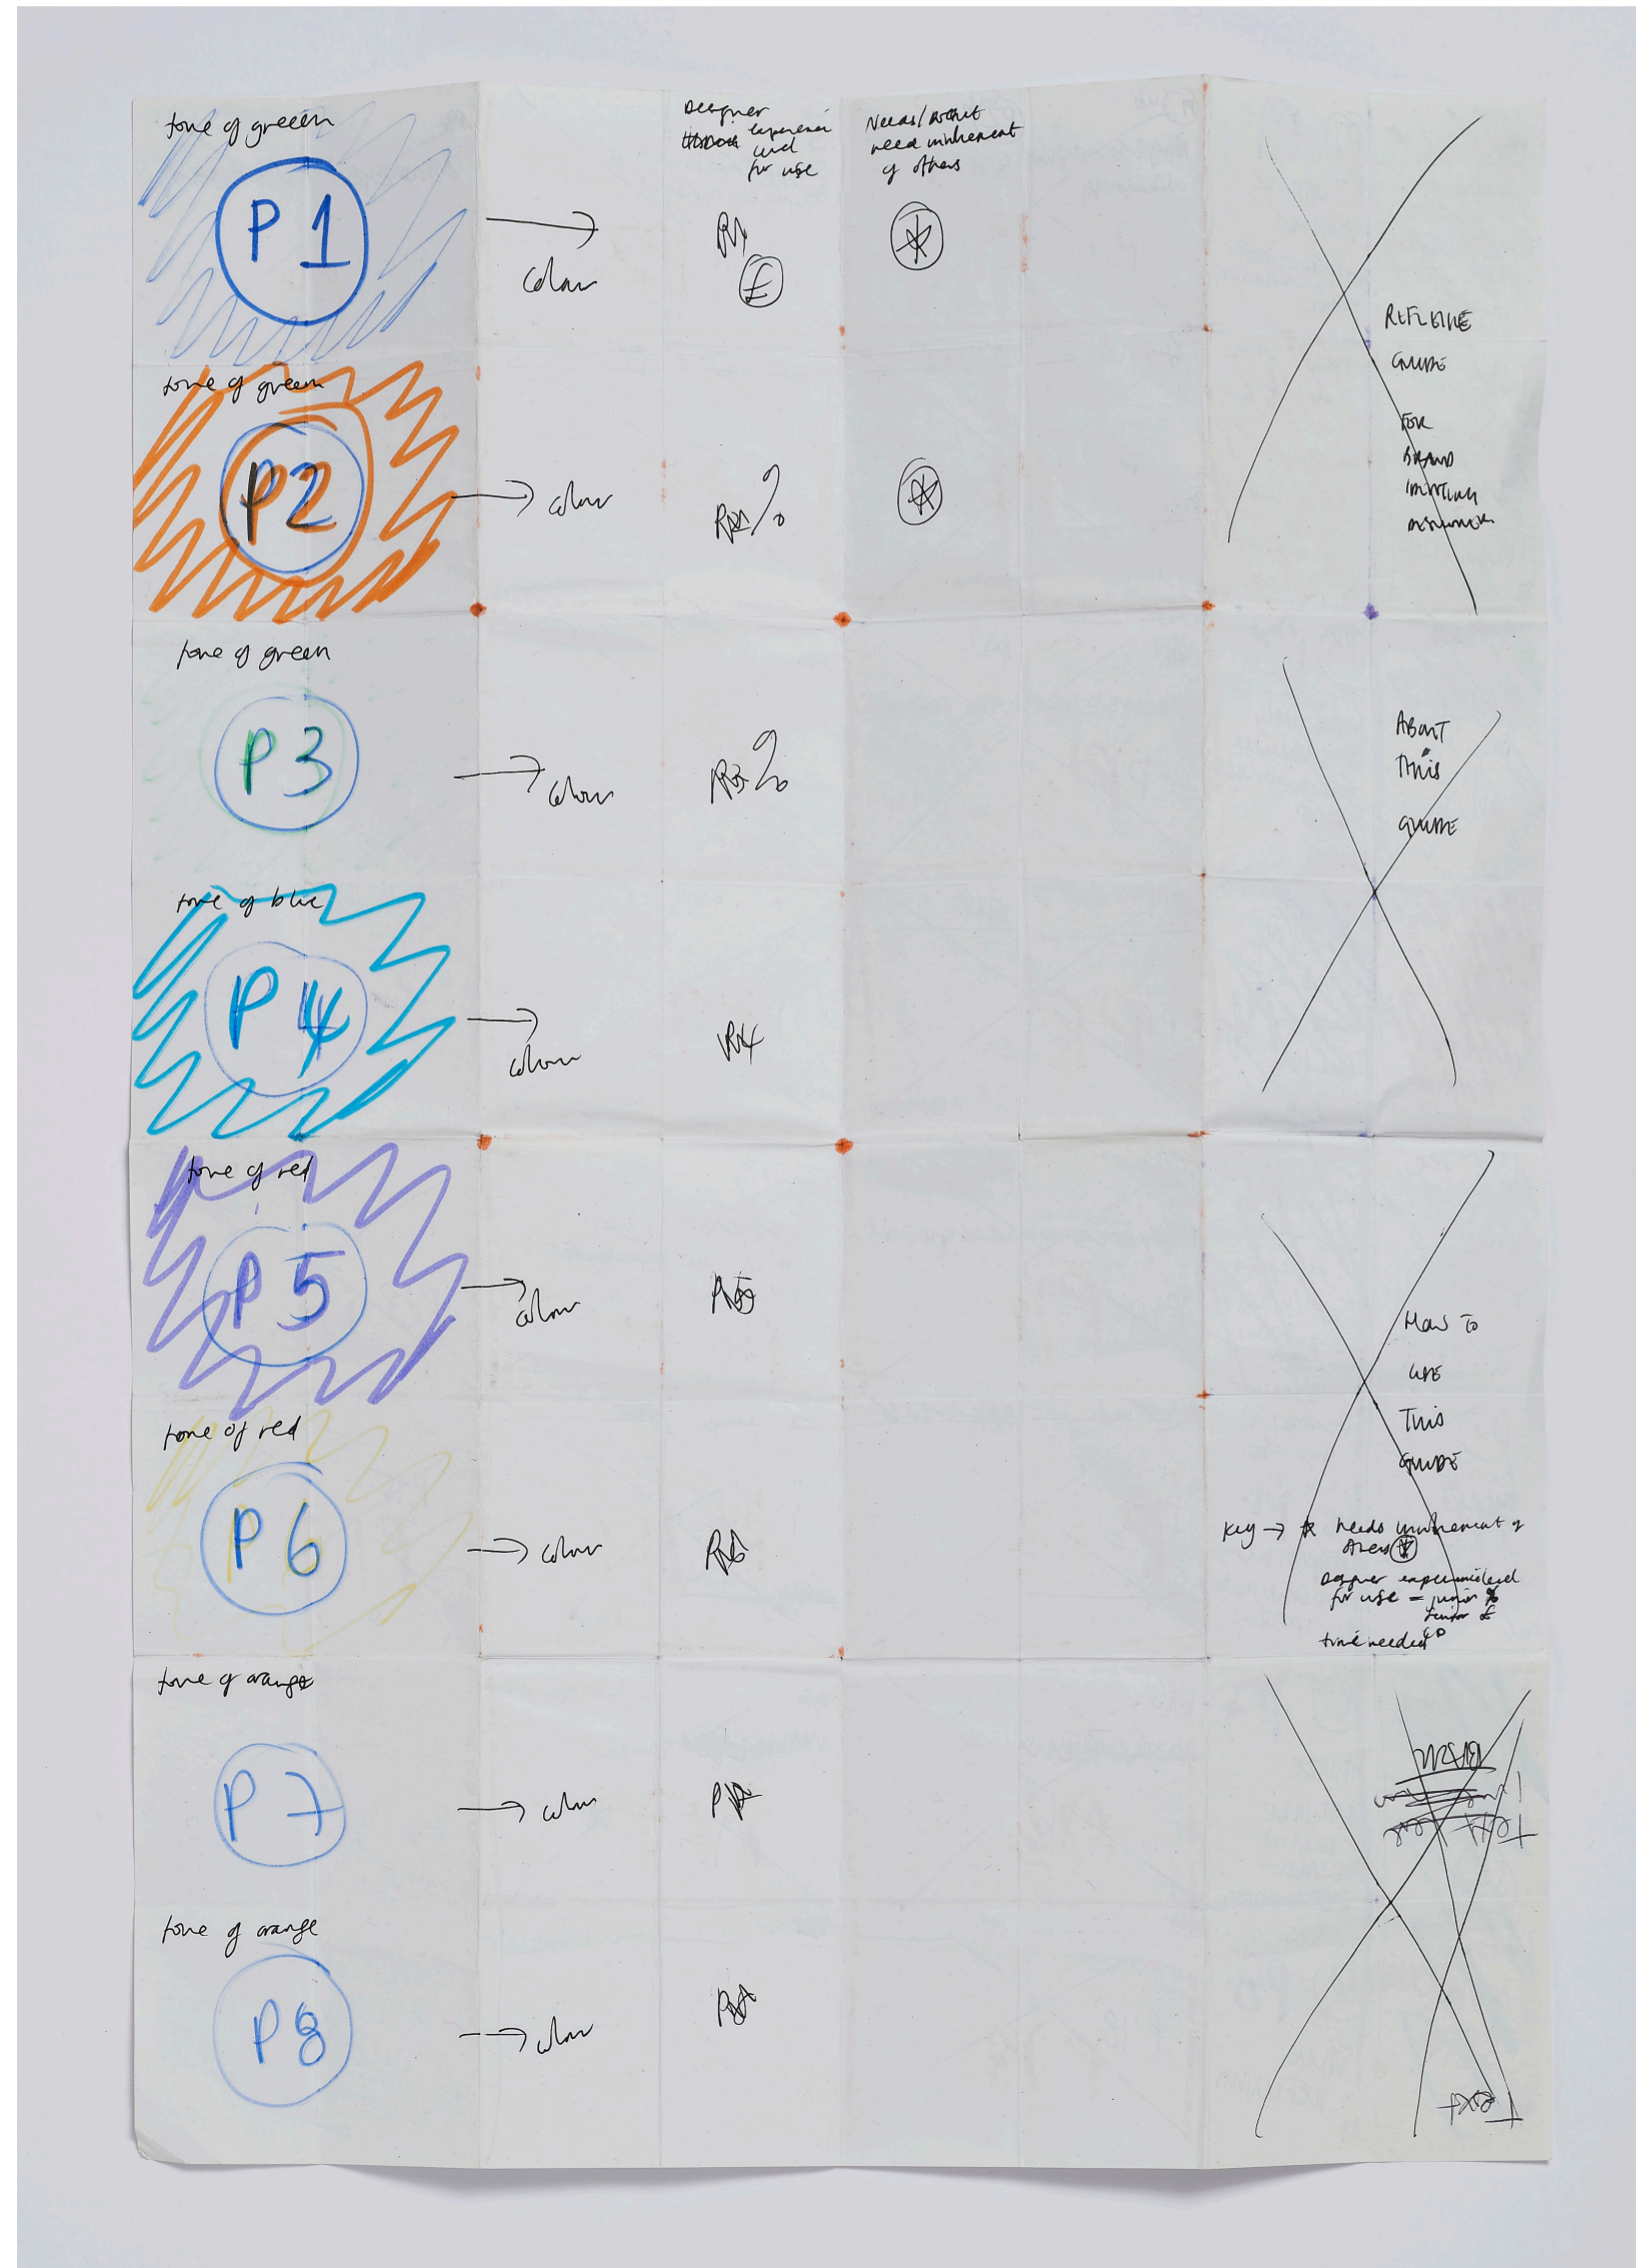 tone of greeen
Designer
experience
level
for use
Needs/doesnt
need involvement
of others
P 1
colour
P1
£
tone of green
P2
colour
%
tone of green
P 3
colour
%
tone of blue
P 4
colour
P4
tone of red
P 5
colour
P5
tone of red
P 6
colour
P6
tone of orange
P 7
colour
P7
tone of orange
P 8
colour
P8
REFLECTIVE
GUIDE
FOR
BRAND
IDENTITY
DESIGNERS
ABOUT
THIS
GUIDE
HOW TO
USE
THIS
GUIDE
Key → * needs involvement of
others
Designer experience level
for use = junior %
Senior £
time needed
Text